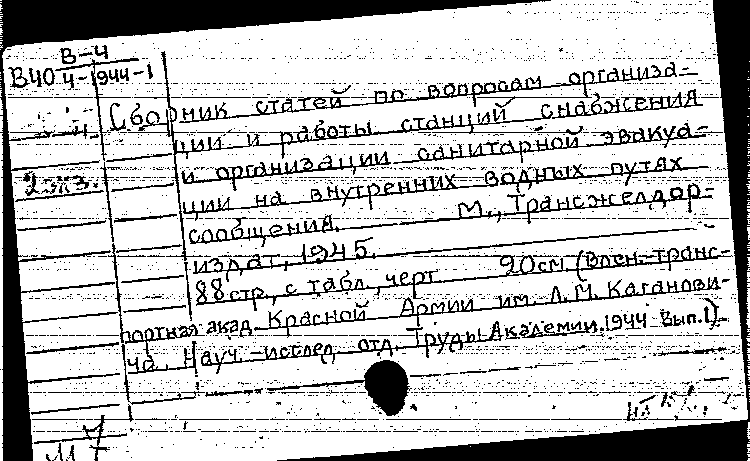 В-4
В40 4-1944-1
Сборник статей по вопросам организа-
ции и работы станций снабжения
и организации санитарной эвакуа-
ции на внутренних водных путях
сообщения. М., Трансжелдор-
издат, 1945.
88 стр., с табл., черт 20см (Воен.-транс-
портная акад. Красной Армии им. Л.М. Каганови-
ча. Науч.-исслед. отд. Труды Академии, 1944 Вып.1)
2 экз.